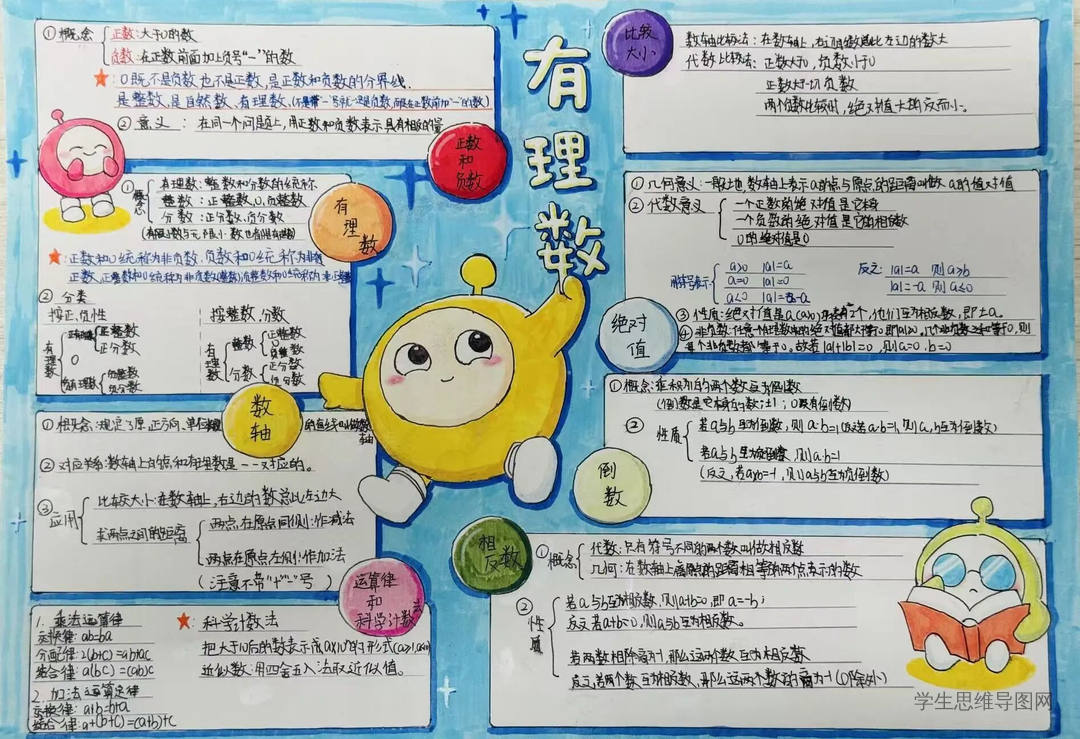 有理数
正数和负数
①概念
正数:大于0的数
负数:在正数前面加上负号“一”的数
★:0既不是负数也不是正数,是正数和负数的分界线.
是整数,是自然数、有理数,
②意义:在同一个问题上,用正数和负数表示具有相反的量
有理数
①概念
有理数:整数和分数的统称
整数:正整数,0,负整数
分数:正分数,负分数
★:正数和0统称为非负数,负数和0统称为非正数
②分类
按正、负性
有理数
正有理数
正整数
正分数
0
负有理数
负整数
负分数
按整数、分数
有理数
整数
正整数
0
负整数
分数
正分数
负分数
数轴
①概念:规定了原点,正方向、单位长度的直线叫做数轴
②对应关系:数轴上的点和有理数是一一对应的。
③应用
比较大小:在数轴上,右边的数总比左边大
求两点之间的距离
两点在原点同侧:作减法
两点在原点左侧:作加法
(注意不带“+”“-”号)
运算律和科学计数法
1.乘法运算律
交换律:ab=ba
分配律:a(b+c)=ab+ac
结合律:a(bc)=(ab)c
2.加法运算定律
交换律:a+b=b+a
结合律:a+(b+c)=(a+b)+c
★:科学计数法
把大于10的数表示成a×10ⁿ的形式
近似数:用四舍五入法取近似值。
比较大小
数轴比较法:在数轴上,右边的数总比左边的数大
代数比较法:正数大于0,负数小于0
正数大于一切负数
两个负数比较时,绝对值大的反而小。
绝对值
①几何意义:一般地,数轴上表示a的点与原点的距离叫做a的绝对值
②代数意义
一个正数的绝对值是它本身
一个负数的绝对值是它的相反数
0的绝对值是0
用符号表示
a>0 |a|=a
a=0 |a|=0
a<0 |a|=-a
反之:|a|=a 则a≥b
|a|=-a 则a≤0
③性质:绝对值是a(a>0)的数有2个,他们互为相反数,即±a。
每个非负数都等于0。故若|a|+|b|=0,则a=0,b=0
倒数
①概念:乘积为1的两个数互为倒数
(倒数是它本身的数:±1;0没有倒数)
②性质
若a与b互为倒数,则a·b=1(反之若a·b=1,则a,b互为倒数)
若a与b互为负倒数,则a·b=-1
(反之,若ab=-1,则a与b互为负倒数)
相反数
①概念
代数:只有符号不同的两个数叫做相反数
几何:在数轴上离原点的距离相等的两个点表示的数
②性质
若a与b互为相反数,则a+b=0,即a=-b;
反之若a+b=0,则a与b互为相反数。
若两数相除商为-1,那么这两个数互为相反数
反之,若两个数互为相反数,那么这两个数的商为-1(0除外)
学生思维导图网